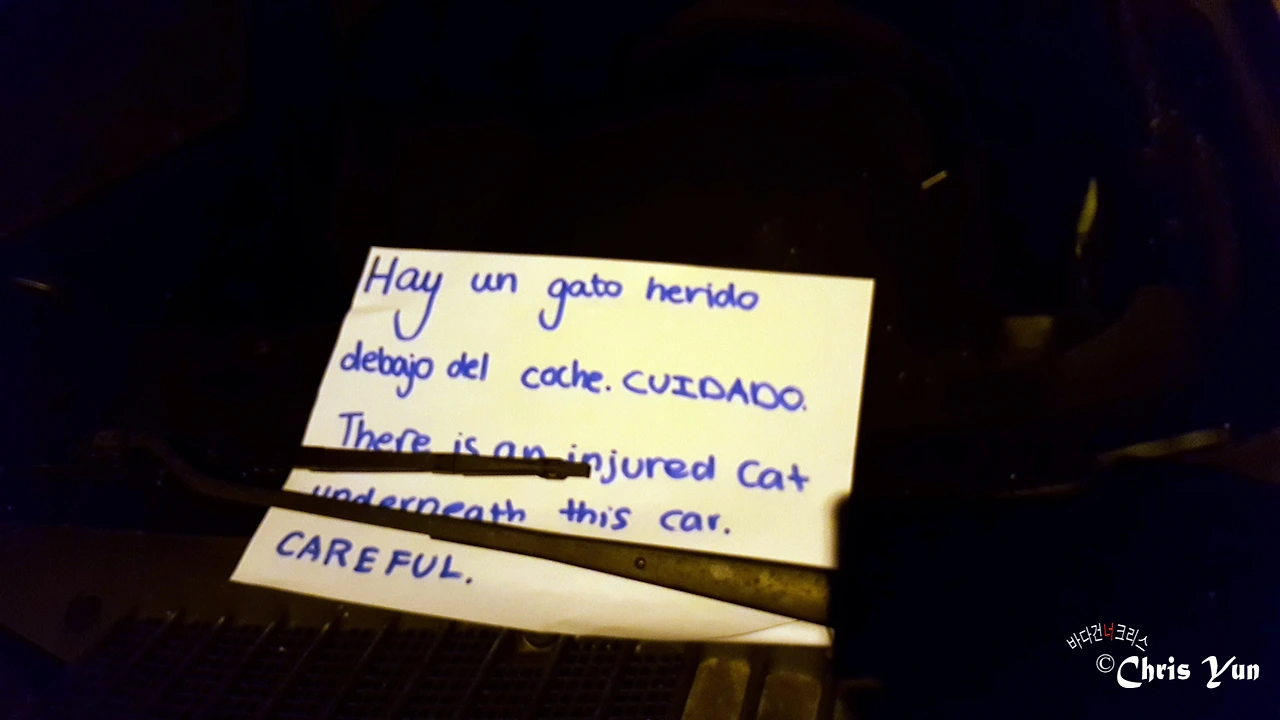 Hay un gato herido
debajo del coche. CUIDADO.
There is an injured Cat
underneath this car.
CAREFUL.
바다건너크리스
©Chris Yun